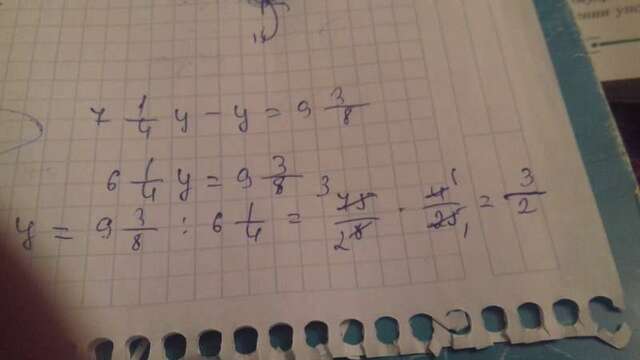 7 1/4 y - y = 9 3/8
6 1/4 y = 9 3/8
y = 9 3/8 : 6 1/4 = 75/8 · 4/25 = 3/2